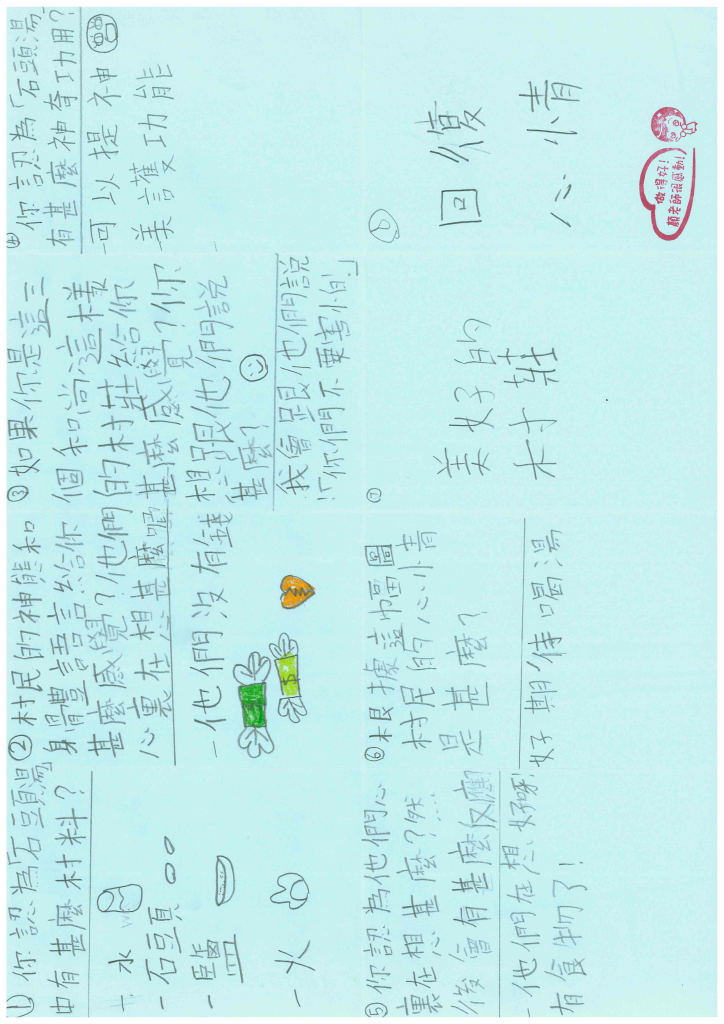 ①你認為「石頭湯」
中有甚麼材料?
水
一石頭
一鹽
一火
②村民的神態和
身體語言給你
甚麼感覺?他們的
心裏在想甚麼呢
一他們沒有錢
③如果你是這三
個和尚,這樣
的村莊給你
甚麼感覺?你
想跟他們說
甚麼?
我會跟他們說
「你們不要害怕」
④你認為「石頭湯」
有甚麼神奇功用?
可以提神
美護功能
⑤你認為他們心
裏在想甚麼?然
後會有甚麼反應
一他們在想,好呀!
有食物了!
⑥根據這幅圖
村民的心情
是甚麼?
好期待喝湯
⑦
美好的
村莊
⑧
回復
心情
做得好!
顏老師很感動!